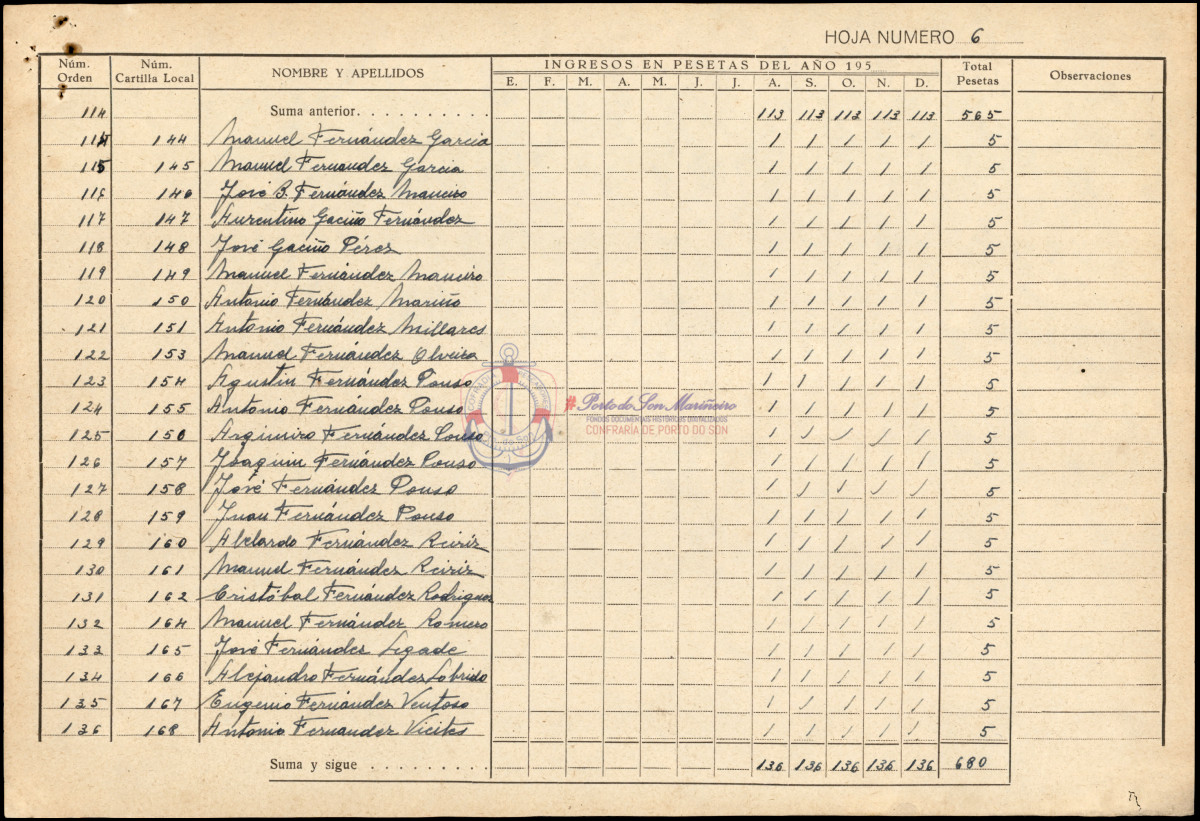 HOJA NUMERO 6
Núm. Orden Núm. Cartilla Local NOMBRE Y APELLIDOS INGRESOS EN PESETAS DEL AÑO 195 Total Pesetas Observaciones
E. F. M. A. M. J. J. A. S. O. N. D.
114 Suma anterior 113 113 113 113 113 565
114 144 Manuel Fernández Garcia 1 1 1 1 1 5
115 145 Manuel Fernandez Garcia 1 1 1 1 1 5
116 146 José B. Fernández Maneiro 1 1 1 1 1 5
117 147 Aurentino Gaciño Fernández 1 1 1 1 1 5
118 148 José Gaciño Pérez 1 1 1 1 1 5
119 149 Manuel Fernández Maneiro 1 1 1 1 1 5
120 150 Antonio Fernández Mariño 1 1 1 1 1 5
121 151 Antonio Fernández Millares 1 1 1 1 1 5
122 153 Manuel Fernández Olveira 1 1 1 1 1 5
123 154 Agustin Fernández Pouso 1 1 1 1 1 5
124 155 Antonio Fernández Pouso 1 1 1 1 1 5
125 156 Argimiro Fernández Pouso 1 1 1 1 1 5
126 157 Joaquin Fernández Pouso 1 1 1 1 1 5
127 158 José Fernández Pouso 1 1 1 1 1 5
128 159 Juan Fernández Pouso 1 1 1 1 1 5
129 160 Abelardo Fernández Reiriz 1 1 1 1 1 5
130 161 Manuel Fernández Reiriz 1 1 1 1 1 5
131 162 Cristóbal Fernández Rodriguez 1 1 1 1 1 5
132 164 Manuel Fernández Romero 1 1 1 1 1 5
133 165 José Fernández Segade 1 1 1 1 1 5
134 166 Alejandro Fernández Sobrido 1 1 1 1 1 5
135 167 Eugenio Fernández Ventoso 1 1 1 1 1 5
136 168 Antonio Fernandez Vicites 1 1 1 1 1 5
Suma y sigue 136 136 136 136 136 680
#Porto do Son Mariñeiro
FONDOS DOCUMENTAIS HISTÓRICOS DIXITALIZADOS
CONFRARÍA DE PORTO DO SON